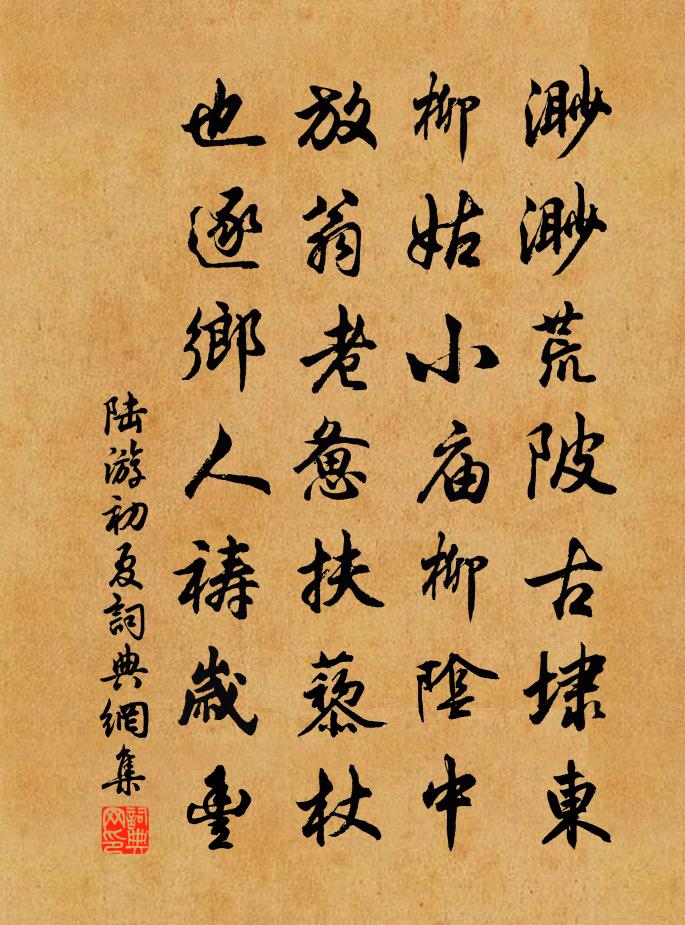 渺渺荒陂古埭東
柳姑小庙柳陰中
放翁老憊扶藜杖
也逐鄉人禱歲豐
陸游初夏詞典網集
詞典网印